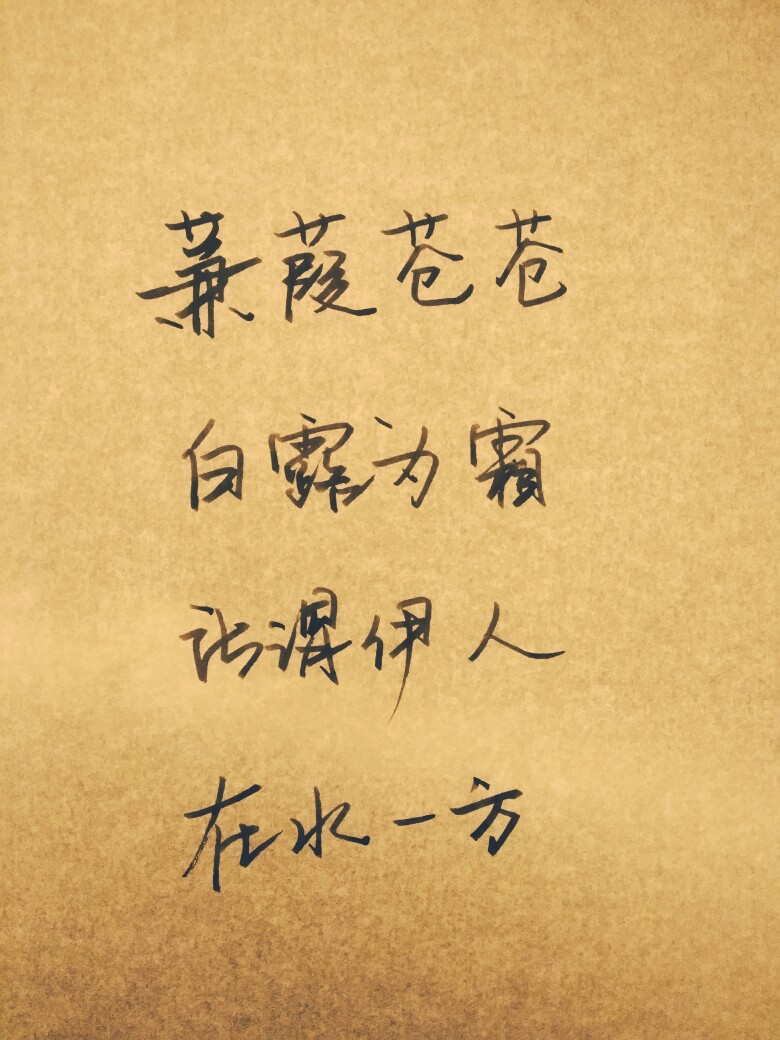 蒹葭苍苍
白露为霜
所谓伊人
在水一方